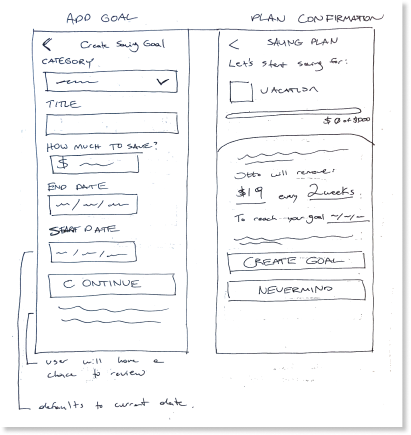 ADD GOAL
< Create Saving Goal
CATEGORY
TITLE
HOW MUCH TO SAVE?
$
END DATE
-/-/-
START DATE
-/-/-
CONTINUE
user will have a
chance to review
defaults to current date.
PLAN CONFIRMATION
< SAVING PLAN
Let's start saving for:
VACATION
$0 of $1000
Otto will remove:
$19 every 2 weeks
To reach your goal -/-/-
CREATE GOAL
NEVERMIND